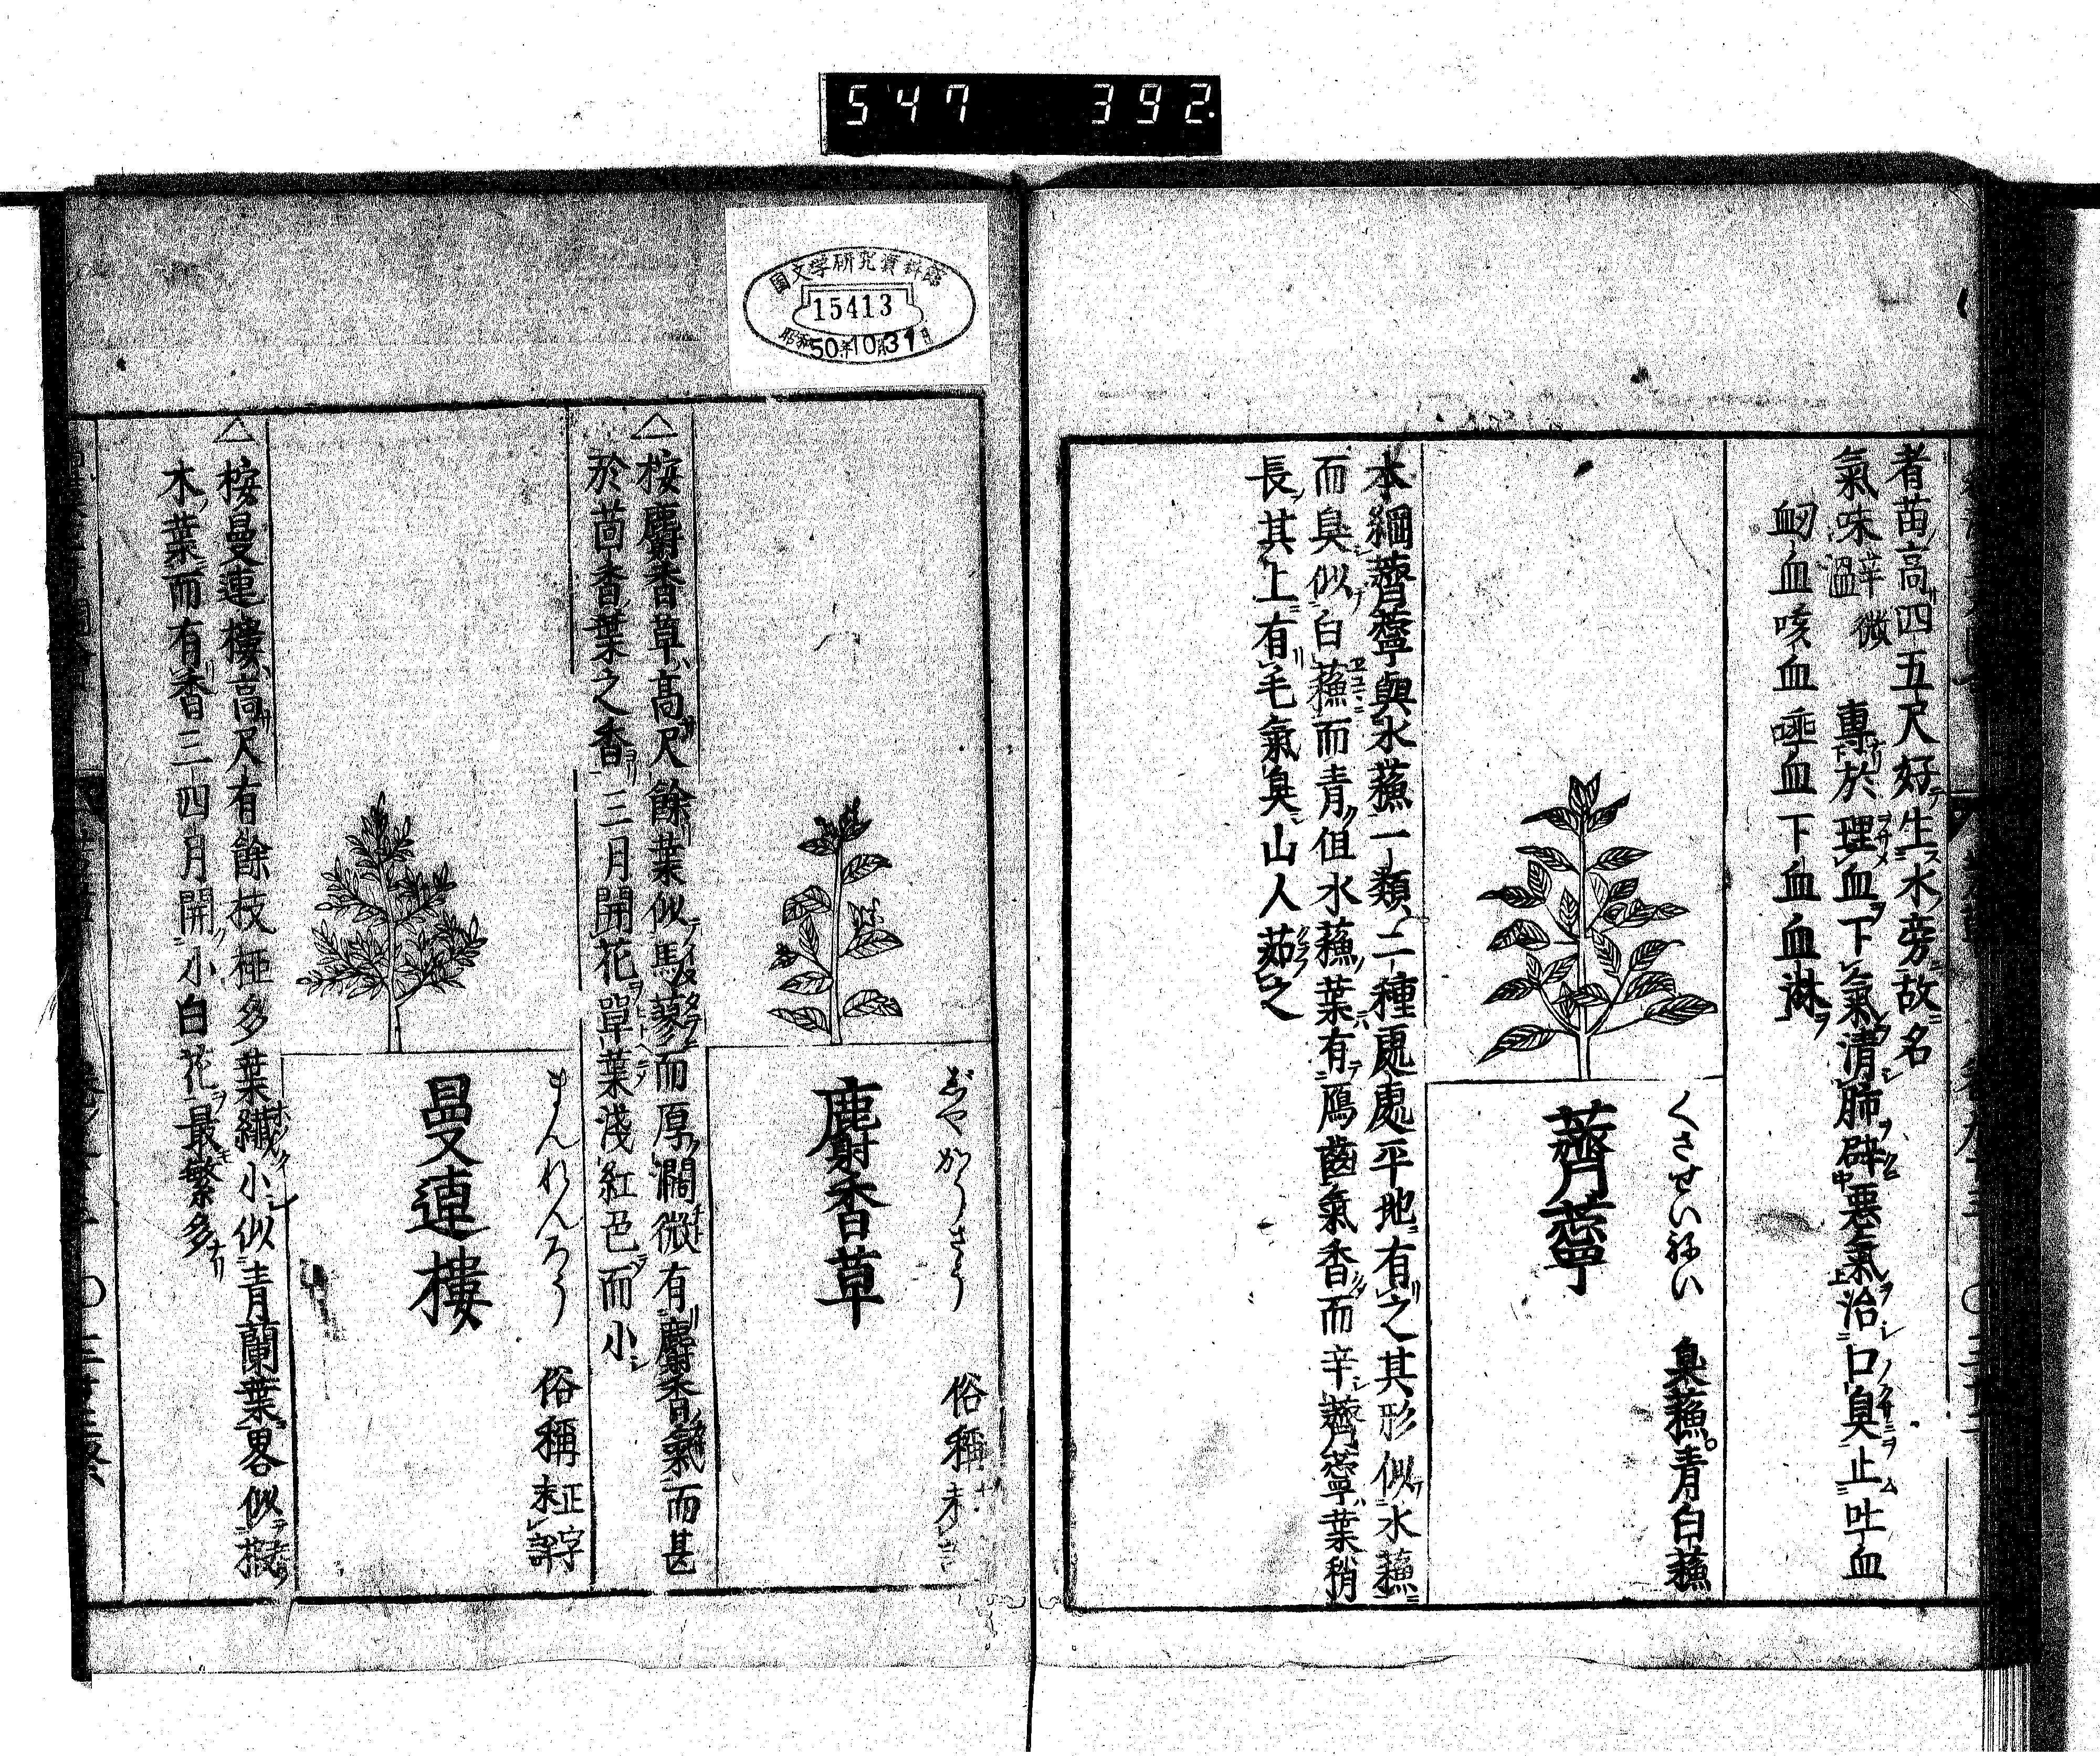 547 392.
者苗高四五尺好生水旁故名
氣味辛微溫 專於理血下氣清肺辟惡氣治口臭止吐血
衂血咳血唾血下血血淋
くさせいねい 臭蘓 青白蘓
薺薴
本綱薺薴與水蘓一類二種處處平地有之其形似水蘓
而臭似白蘓而青但水蘓葉有鴈齒氣香而辛薺薴葉稍
長其上有毛氣臭山人茹之
国文学研究資料館
15413
昭和50年10月31日
じやかうさう 俗稱
麝香草
△桉麝香草高尺餘葉似馬蓼而厚濶微有麝香氣而甚
於茴香葉之香三月開花單葉淺紅色而小
まんれんろう 俗稱 正字未詳
曼連樓
△桉曼連樓高尺有餘枝極多葉纎小似青蘭葉畧似椴
木葉而有香三四月開小白花最繁多